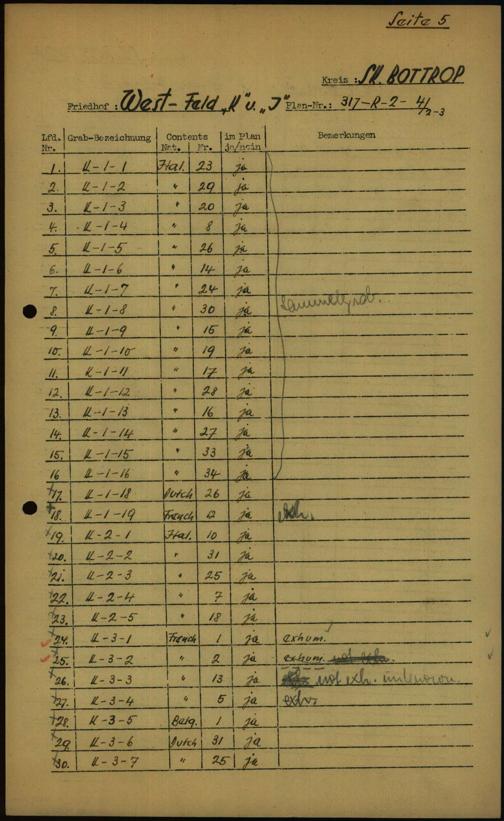 Seite 5
Kreis : SK. BOTTROP
Friedhof : West-Feld „K" u. „J" Plan-Nr.: 317-R-2-4/2-3
Lfd. Nr. Grab-Bezeichnung Contents Nat. Nr. im Plan ja/nein Bemerkungen
1. K-1-1 Ital. 23 ja
2. K-1-2 " 29 ja
3. K-1-3 " 20 ja
4. K-1-4 " 8 ja
5. K-1-5 " 26 ja
6. K-1-6 " 14 ja
7. K-1-7 " 24 ja
8. K-1-8 " 30 ja Sammelgrab.
9. K-1-9 " 15 ja
10. K-1-10 " 19 ja
11. K-1-11 " 17 ja
12. K-1-12 " 28 ja
13. K-1-13 " 16 ja
14. K-1-14 " 27 ja
15. K-1-15 " 33 ja
16 K-1-16 " 34 ja
17. K-1-18 Dutch 26 ja
18. K-1-19 French 12 ja
19. K-2-1 Ital. 10 ja
20. K-2-2 " 31 ja
21. K-2-3 " 25 ja
22. K-2-4 " 7 ja
23. K-2-5 " 18 ja
24. K-3-1 French 1 ja exhum.
25. K-3-2 " 2 ja exhum.
26. K-3-3 " 13 ja not exh. unknown
27. K-3-4 " 5 ja exh.
28. K-3-5 Bulg. 1 ja
29. K-3-6 Dutch 31 ja
30. K-3-7 " 25 ja